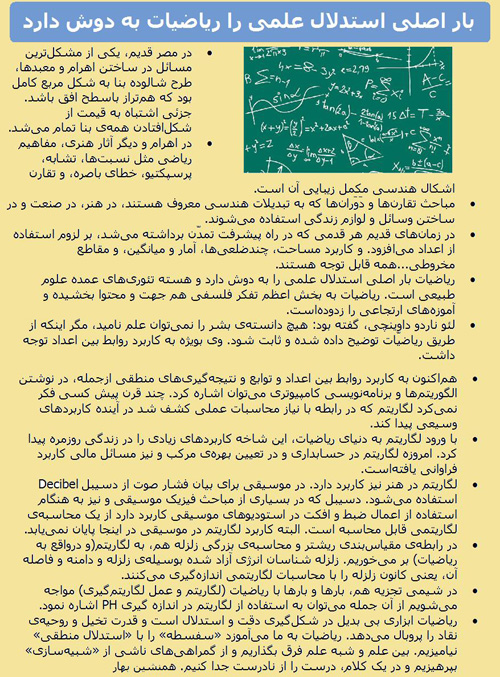 بار اصلی استدلال علمی را ریاضیات به دوش دارد
• در مصر قدیم، یکی از مشکل‌ترین
مسائل در ساختن اهرام و معبدها،
طرح شالوده بنا به شکل مربع کامل
بود که هم‌تراز باسطح افق باشد.
جزئی اشتباه به قیمت از
شکل‌افتادن همه‌ی بنا تمام می‌شد.
• در اهرام و دیگر آثار هنری، مفاهیم
ریاضی مثل نسبت‌ها، تشابه،
پرسپکتیو، خطای باصره، و تقارن
اشکال هندسی مکمل زیبایی آن است.
• مباحث تقارن‌ها و دوران‌ها که به تبدیلات هندسی معروف هستند، در هنر، در صنعت و در
ساختن وسائل و لوازم زندگی استفاده می‌شوند.
• در زمان‌های قدیم هر قدمی که در راه پیشرفت تمدّن برداشته می‌شد، بر لزوم استفاده
از اعداد می‌افزود. و کاربرد مساحت، چندضلعی‌ها، آمار و میانگین، و مقاطع
مخروطی...همه قابل توجه هستند.
• ریاضیات بار اصلی استدلال علمی را به دوش دارد و هسته تئوری‌های عمده علوم
طبیعی است. ریاضیات به بخش اعظم تفکر فلسفی هم جهت و محتوا بخشیده و
آموزه‌های ارتجاعی را زدوده‌است.
• لئو ناردو داوینچی، گفته بود: هیچ دانسته‌ی بشر را نمی‌توان علم نامید، مگر اینکه از
طریق ریاضیّات توضیح داده شده و ثابت شود. وی بویژه به کاربرد روابط بین اعداد توجه
داشت.
• هم‌اکنون به کاربرد روابط بین اعداد و توابع و نتیجه‌گیری‌های منطقی ازجمله، در نوشتن
الگوریتم‌ها و برنامه‌نویسی کامپیوتری می‌توان اشاره کرد. چند قرن پیش کسی فکر
نمی‌کرد لگاریتم که در رابطه با نیاز محاسبات عملی کشف شد در آینده کاربردهای
وسیعی پیدا کند.
• با ورود لگاریتم به دنیای ریاضیات، این شاخه کاربردهای زیادی را در زندگی روزمره پیدا
کرد. امروزه لگاریتم در حسابداری و در تعیین بهره‌ی مرکب و نیز مسائل مالی کاربرد
فراوانی یافته‌است.
• لگاریتم در هنر نیز کاربرد دارد. در موسیقی برای بیان فشار صوت از دسیبل Decibel
استفاده می‌شود. دسیبل که در بسیاری از مباحث فیزیک موسیقی و نیز به هنگام
استفاده از اعمال ضبط و افکت در استودیوهای موسیقی کاربرد دارد از یک محاسبه‌ی
لگاریتمی قابل محاسبه است. البته کاربرد لگاریتم در موسیقی در اینجا پایان نمی‌یابد.
• در رابطه‌ی مقیاس‌بندی ریشتر و محاسبه‌ی بزرگی زلزله هم، به لگاریتم(و درواقع به
ریاضیات) بر می‌خوریم. زلزله شناسان انرژی آزاد شده بوسیله‌ی زلزله و دامنه و فاصله
آن، یعنی کانون زلزله را با محاسبات لگاریتمی اندازه‌گیری می‌کنند.
• در شیمی تجزیه هم، بارها و بارها با ریاضیات (لگاریتم و عمل لگاریتم‌گیری) مواجه
می‌شویم از آن جمله می‌توان به استفاده از لگاریتم در اندازه گیری PH اشاره نمود.
• ریاضیات ابزاری بی بدیل در شکل‌گیری دقت و استدلال است و قدرت تخیل و روحیه‌ی
نقاد را پروبال می‌دهد. ریاضیات به ما می‌آموزد «سفسطه» را با «استدلال منطقی»
نیامیزیم. بین علم و شبه علم فرق بگذاریم و از گمراهی‌های ناشی از «شبیه‌سازی»
بپرهیزیم و در یک کلام، درست را از نادرست جدا کنیم. همنشین بهار